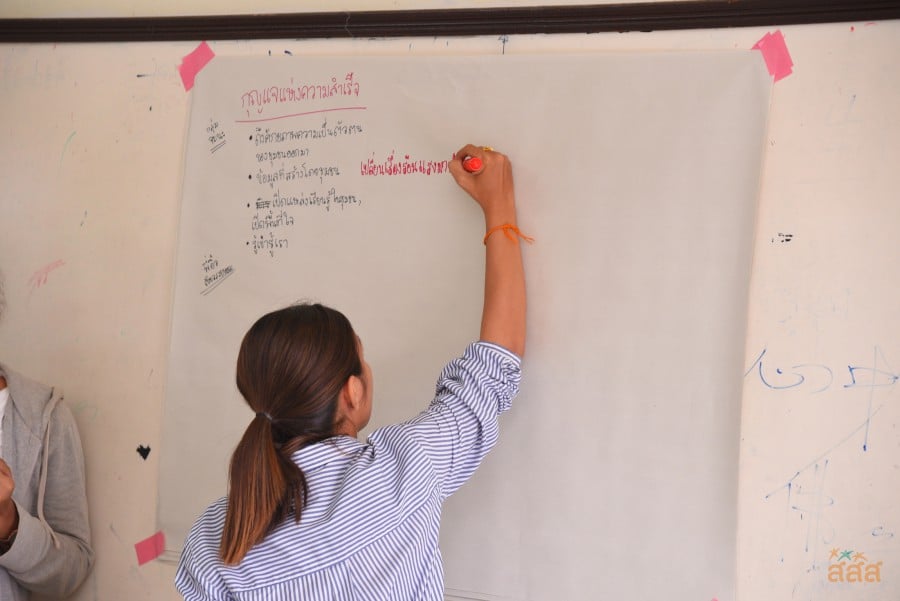 กุญแจแห่งความสำเร็จ
กลุ่ม
• ดึงศักยภาพความเป็นตัวตาน
ของชุมชนออกมา
• ข้อมูลที่สร้างโดยชุมชน
เปลี่ยนเรื่องร้อนแรงมา
• เปิดแหล่งเรียนรู้ในชุมชน,
เปิดพื้นที่ใจ
• รู้เขารู้เรา
สสส